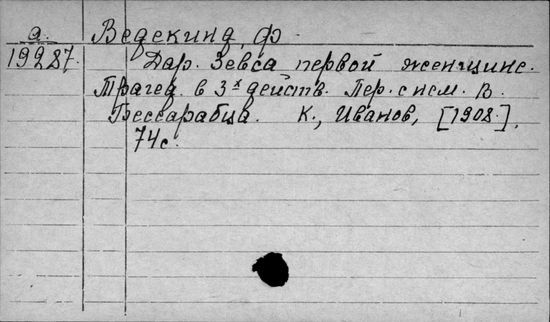 а. Ведекинд, Ф.
19287. Дар Зевса первой женщине.
Трагед. в 3х действ. Пер. с нем. В.
Бессарабца. К., Иванов, [1908].
74 с.